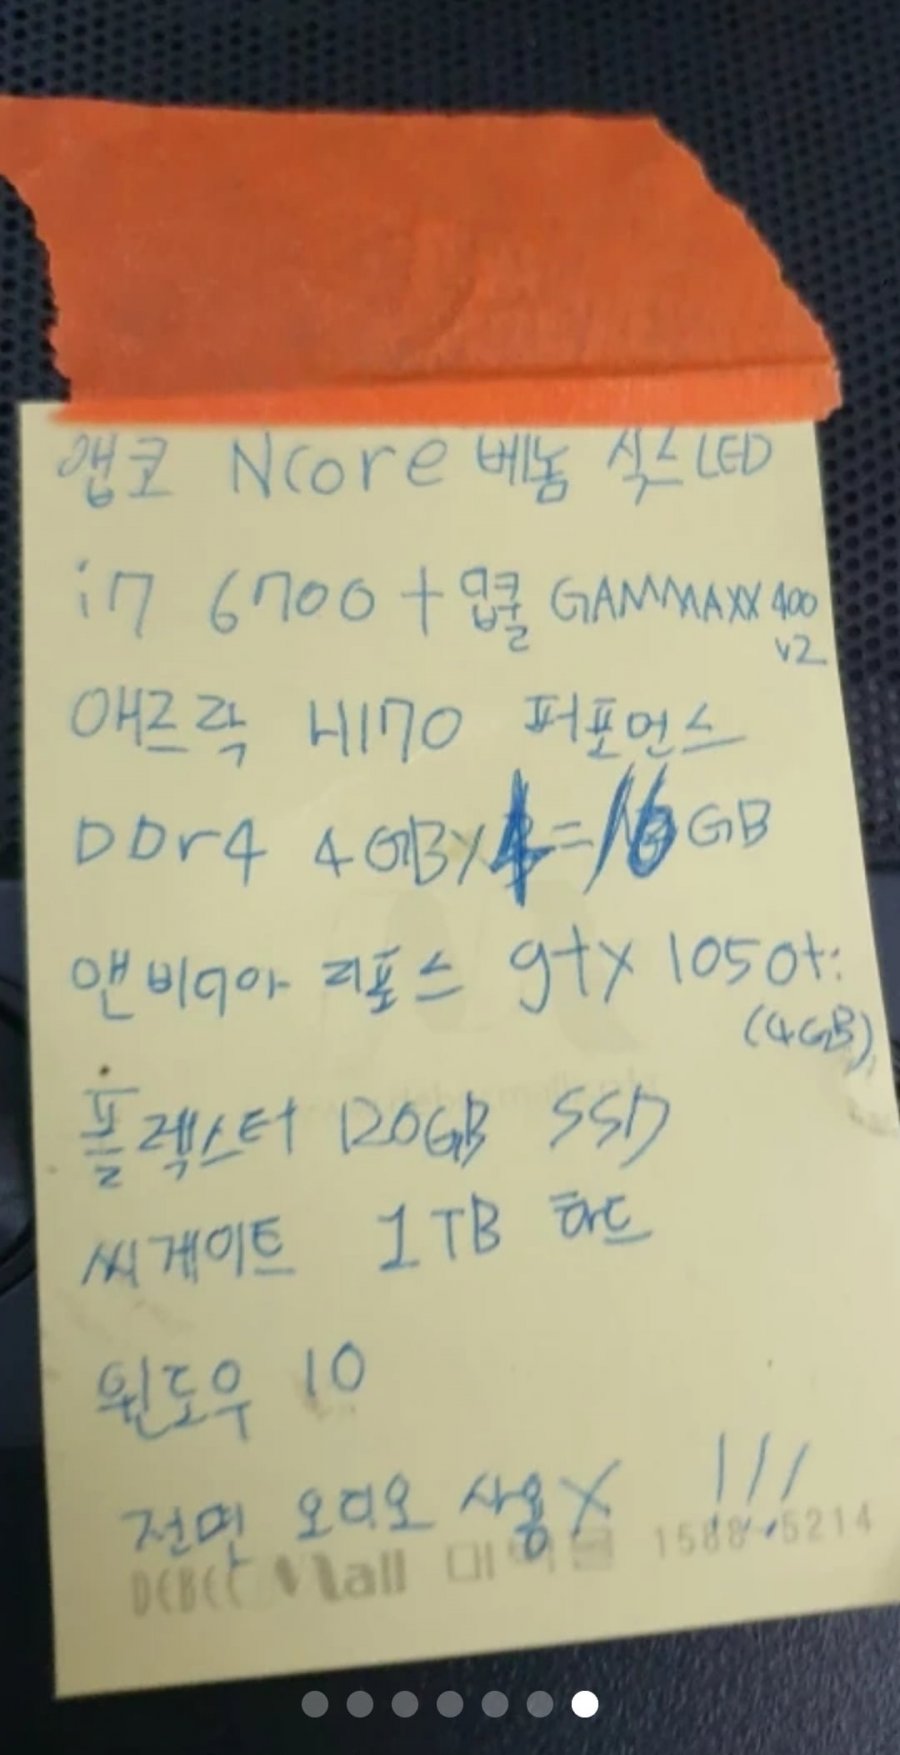 앱코 Ncore 베놈 식스 LED
i7 6700 + 맙쿨 GAMMAXX 400
v2
애즈락 H170 퍼포먼스
DDr4 4GBX4=16GB
앤비디아 지포스 gtx 1050ti
(4GB)
플렉스터 120GB SSD
씨게이트 1TB 하드
윈도우 10
전면 오디오 사용X !!!
Mall 1588-5214